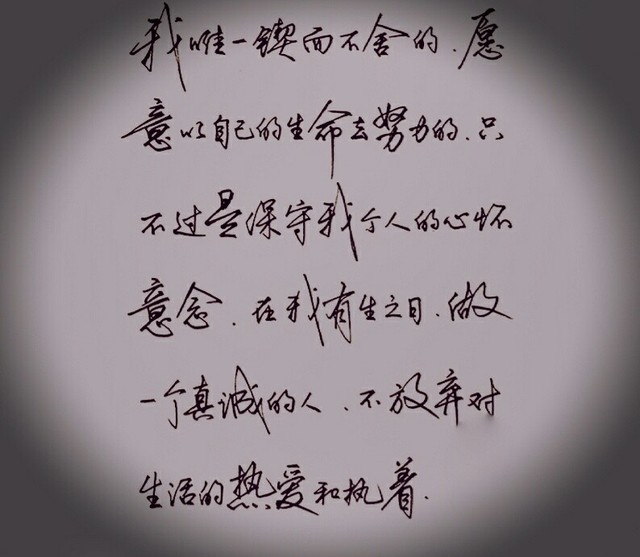 我唯一锲而不舍的、愿
意以自己的生命去努力的、只
不过是保守我个人的心怀
意念、在我有生之日、做
一个真诚的人、不放弃对
生活的热爱和执着.